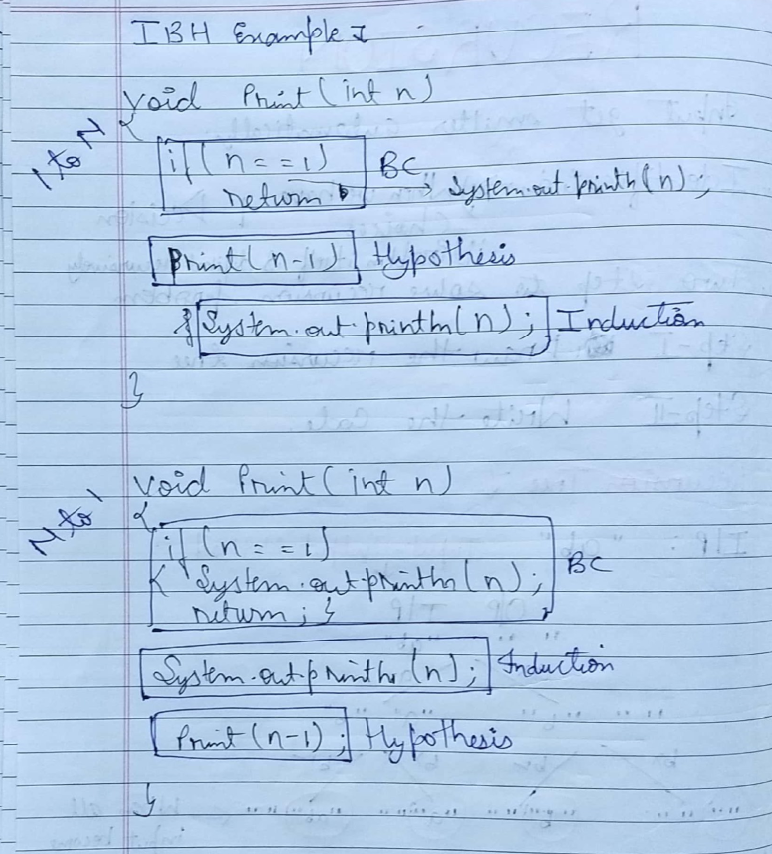 IBH Example I
void Print(int n)
{
1 to N
if(n==1) BC
return → System.out.println(n);
Print(n-1) Hypothesis
System.out.println(n); Induction
}
void Print(int n)
N to 1
{
if(n==1)
{ System.out.println(n); BC
return; }
System.out.println(n); Induction
Print(n-1); Hypothesis
}